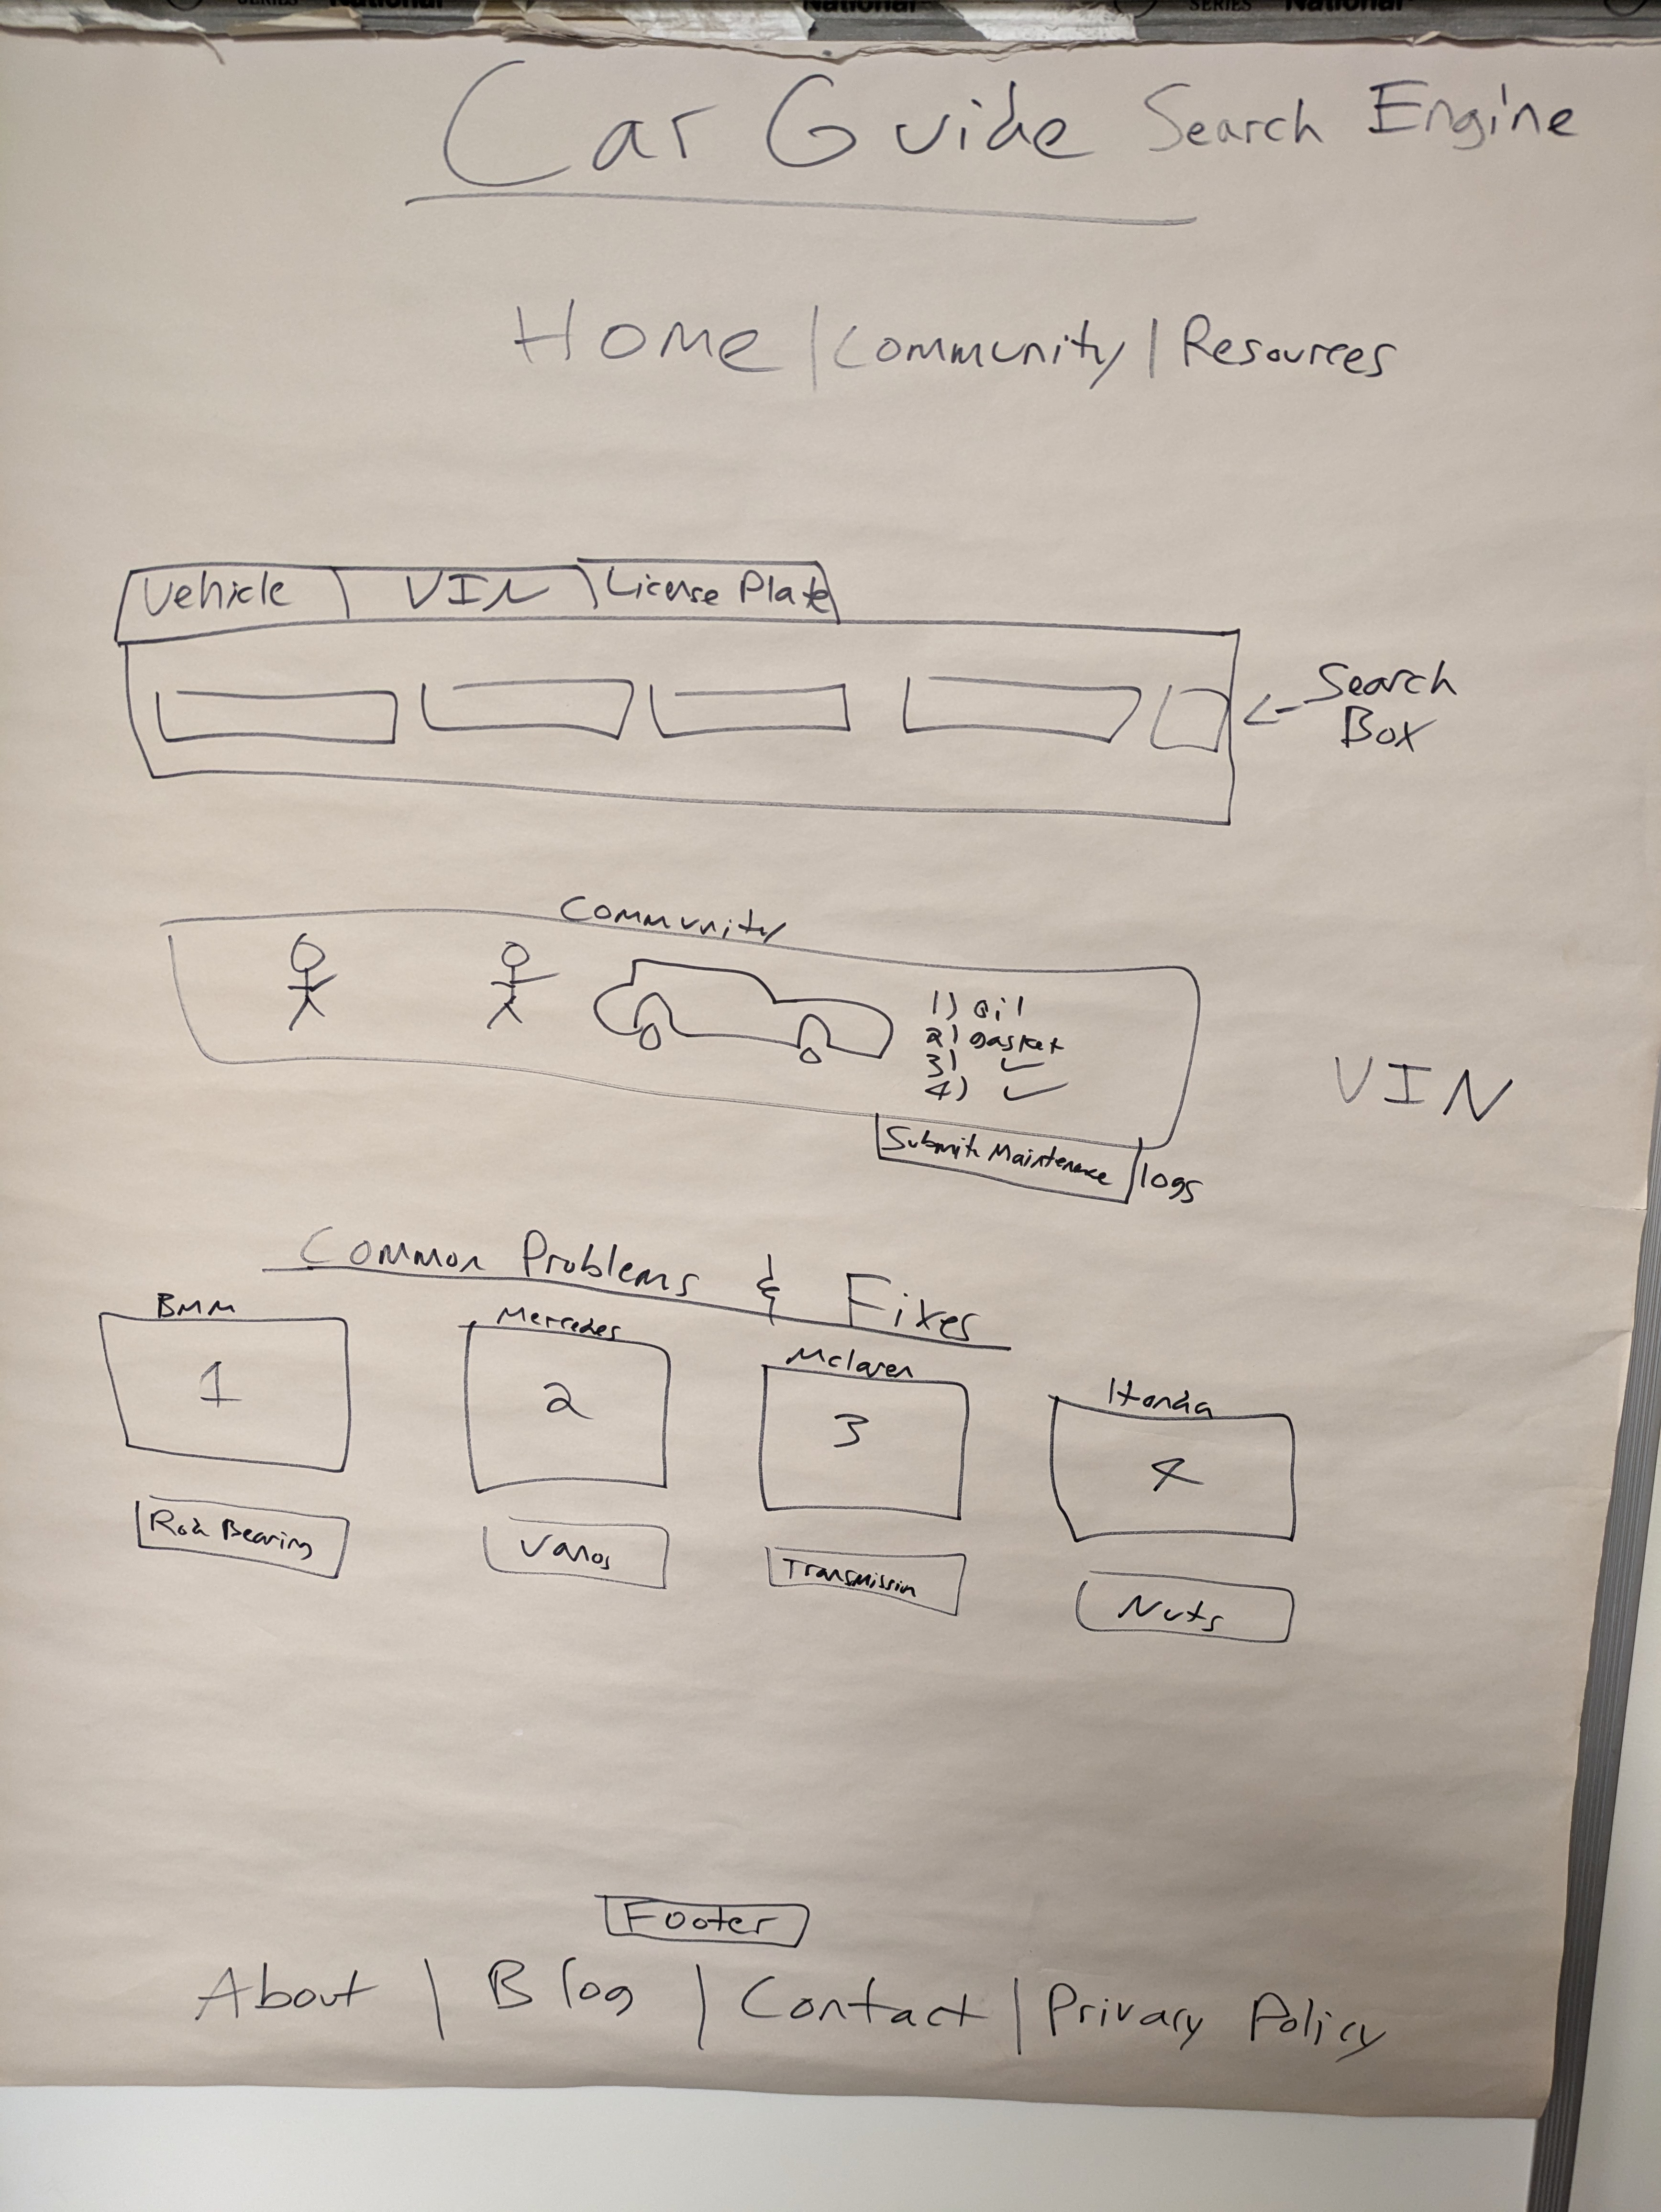 SERIES National National SERIES National
Car Guide Search Engine
Home | Community | Resources
Vehicle VIN License Plate
Search
Box
Community
1) oil
2) gasket
3) ✓
4) ✓
VIN
Submit Maintenence logs
Common Problems & Fixes
BMM Mercedes Mclaren Honda
1 2 3 4
Rod Bearing Vanos Transmission Nuts
Footer
About | Blog | Contact | Privacy Policy